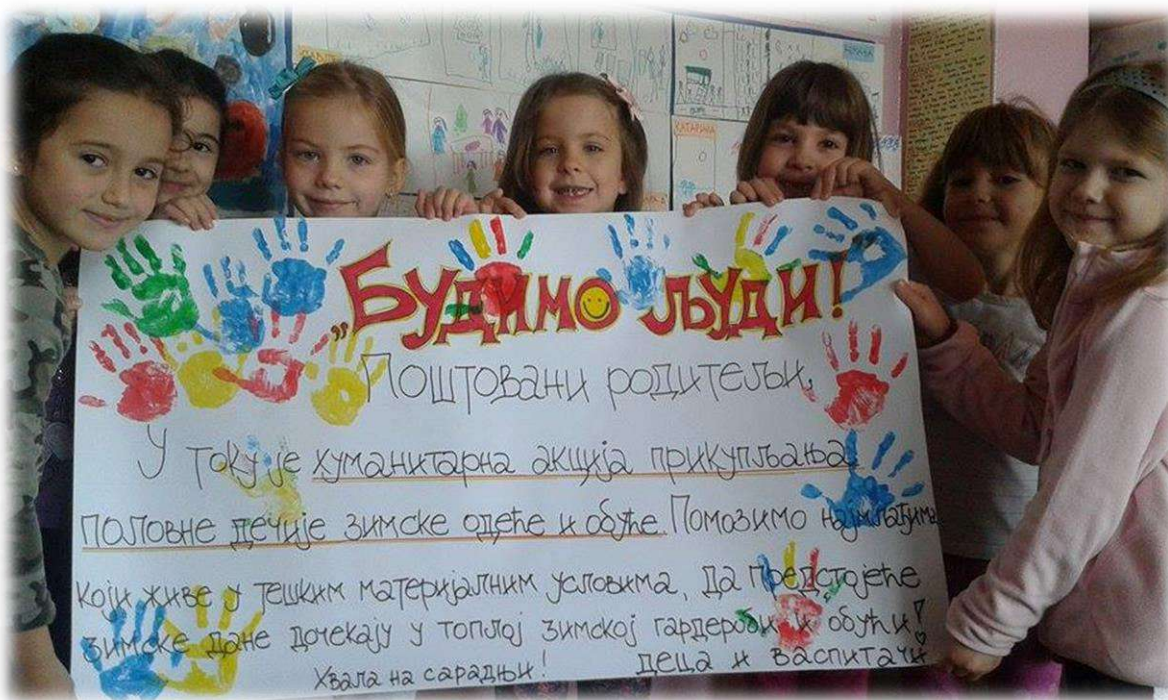 „Будимо људи!
Поштовани родитељи,
У току је хуманитарна акција прикупљања
половне дечије зимске одеће и обуће. Помозимо најмлађима
који живе у тешким материјалним условима, да предстојеће
зимске дане дочекају у топлој зимској гардероби и обући!
Хвала на сарадњи! деца и васпитачи
КАТАРИНА